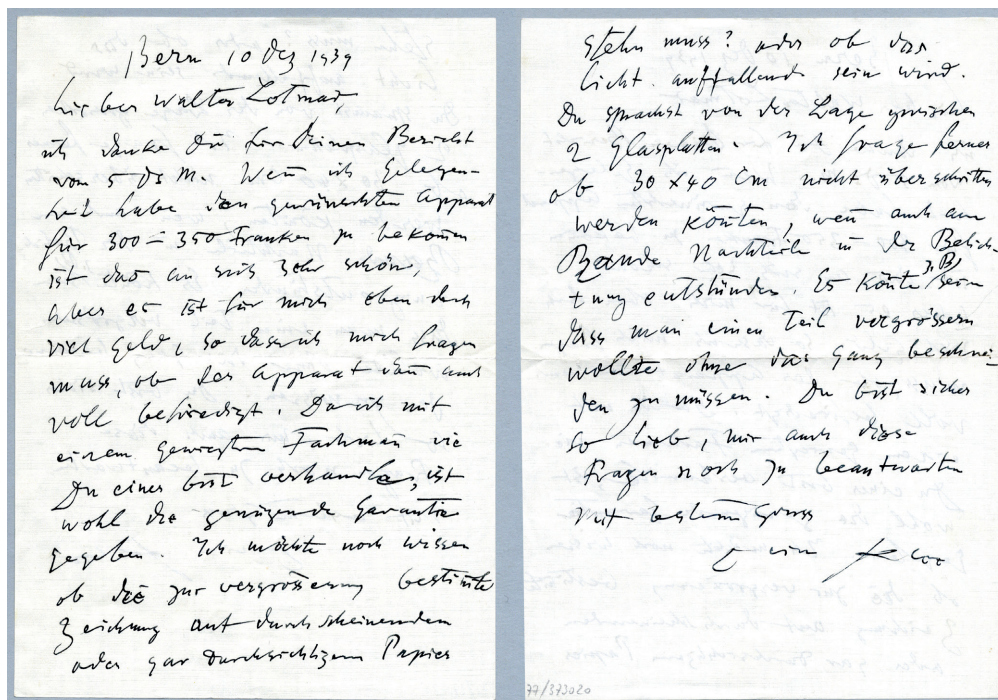 Bern 10 Dez 1939
Lieber Walter Lotmar,
ich danke Dir für Deinen Bericht
vom 5 ds M. Wen̄ ich Gelegen-
heit habe den gewünschten Apparat
für 300 – 350 Franken zu bekom̄en
ist das an sich sehr schön,
aber es ist für mich eben doch
viel Geld, so dass ich mich fragen
muss, ob der Apparat dan̄ auch
voll befriedigt. Da ich mit
einem gewiegten Fachman̄ wie
Du einer bist verhandle, ist
wohl die genügende Garantie
gegeben. Ich möchte noch wissen
ob die zur vergrösserung bestim̄te
Zeichnung auf durchscheinendem
oder gar durchsichtigem Papier
stehn muss? oder ob das
Licht auffallend sein wird.
Du sprachst von der Lage zwischen
2 Glasplatten. Ich frage ferner
ob 30 x 40 cm nicht überschritten
werden kön̄ten, wen̄ auch am
Rande Nachteile in der Belich-
tung entstünden. Es kön̄te z.B. sein
dass man einen Teil vergrössern
wollte ohne das ganz beschnei-
den zu müssen. Du bist sicher
so lieb, mir auch diese
Fragen noch zu beantworten
Mit bestem Gruss
Dein Klee
77/373020